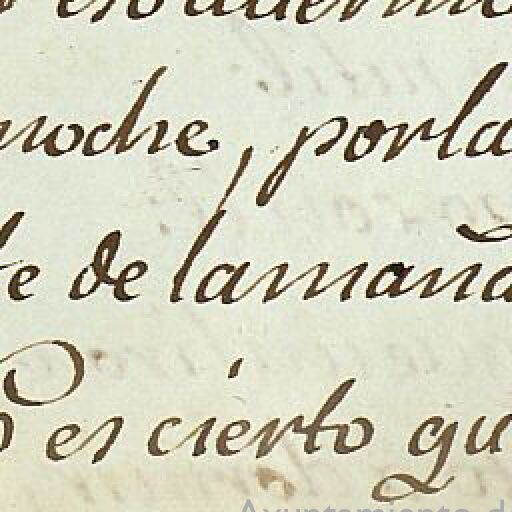 noche, porla
te de lamaña
es cierto qu
Ayuntamiento d